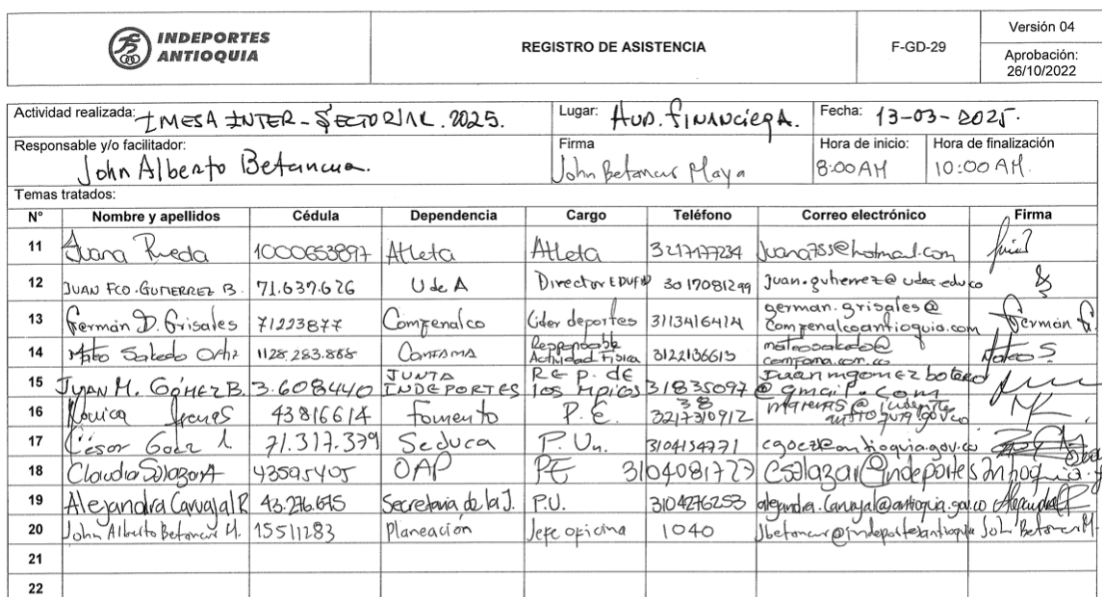 INDEPORTES
ANTIOQUIA
REGISTRO DE ASISTENCIA
F-GD-29
Versión 04
Aprobación:
26/10/2022
Actividad realizada: IMESA INTER-SECTORIAL. 2025.
Lugar: AUD. FINANCIERA.
Fecha: 13-03-2025.
Responsable y/o facilitador:
John Alberto Betancur.
Firma
John Betancur Maya
Hora de inicio:
8:00 AM
Hora de finalización
10:00 AM.
Temas tratados:
N° Nombre y apellidos Cédula Dependencia Cargo Teléfono Correo electrónico Firma
11 Juana Rueda 1000653897 Atleta Atleta 3217177234 Juana755@hotmail.com
12 JUAN FCO. GUTIERREZ B. 71.637.626 U de A Director EDUFID 3017081299 juan.gutierrez@udea.edu.co
13 Germán D. Grisales 71223877 Comfenalco Líder deportes 3113416414 german.grisales@
comfenalcoantioquia.com Germán G.
14 Mateo Salcedo Ortiz 1128.283.868 COMFAMA Responsable
Actividad Física 3122136613 mateosalcedo@
comfama.com.co Mateo S
15 JUAN M. GÓMEZ B. 3.608440 JUNTA
INDEPORTES REP. DE
los Mpios 31835097
38 Juanmgomezbotero
@gmail.com
16 Monica Arenas 43816614 Fomento P.E. 3217310912
17 César Goez l. 71.317.379 Seduca P.Un. 3104154771 cgoez@antioquia.gov.co
18 Claudia Salazar A 43595405 OAP PE 3104081723 Csalazar@indeportesantioquia.
19 Alejandra Carvajal R 43.276.695 Secretaria de la J. P.U. 3104276253 alejandra.carvajal@antioquia.gov.co
20 John Alberto Betancur M. 15511283 Planeación Jefe oficina 1040 Jbetancur@indeportesantioquia John Betancur M
21
22